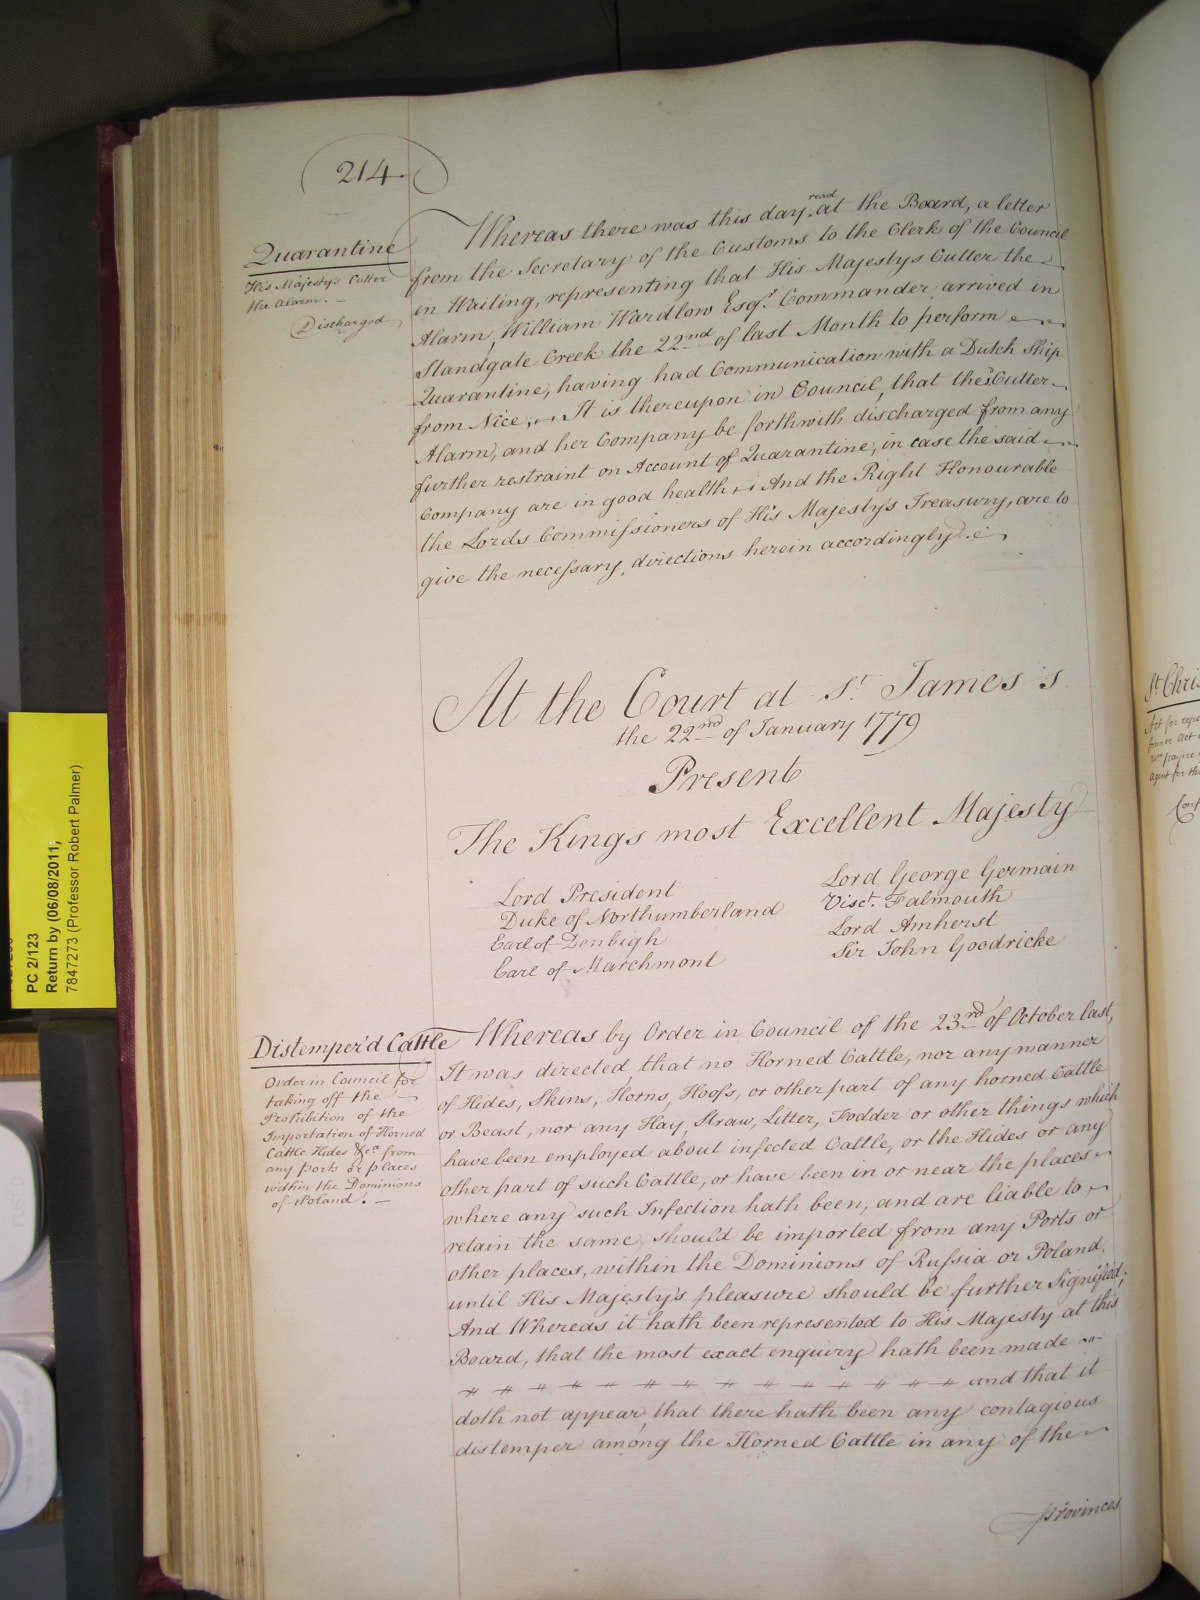 214.
Quarantine
His Majesty's Cutter
the Alarm. —
Discharged
Whereas there was this day read at the Board, a letter
from the Secretary of the Customs to the Clerk of the Council
in Waiting, representing that His Majestys Cutter the
Alarm, William Wardlow Esqr. Commander arrived in
Standgate Creek the 22nd of last Month to perform
Quarantine, having had Communication with a Dutch Ship
from Nice; It is thereupon in Council, that the sd Cutter
Alarm, and her Company be forthwith discharged from any
further restraint on Account of Quarantine, in case the said
Company are in good health And the Right Honourable
the Lords Commissioners of His Majesty's Treasury, are to
give the necessary directions herein accordingly
At the Court at St. James's
the 22nd of January 1779
Present
The Kings most Excellent Majesty
Lord President
Duke of Northumberland
Earl of Denbigh
Earl of Marchmont
Lord George Germain
Visct. Falmouth
Lord Amherst
Sir John Goodricke
Distemper'd Cattle
Order in Council for
taking off the
Prohibition of the
Importation of Horned
Cattle Hides &ca. from
any ports or places
within the Dominions
of Poland. —
Whereas by Order in Council of the 23rd of October last,
It was directed that no Horned Cattle, nor any manner
of Hides, Skins, Horns, Hoofs, or other part of any horned Cattle
or Beast, nor any Hay, Straw, Litter, Fodder or other things which
have been employed about infected Cattle, or the Hides or any
other part of such Cattle, or have been in or near the places
where any such Infection hath been, and are liable to
retain the same, should be imported from any Ports or
other places, within the Dominions of Russia or Poland,
until His Majesty's pleasure should be further Signified;
And Whereas it hath been represented to His Majesty at this
Board, that the most exact enquiry hath been made
and that it
doth not appear, that there hath been any contagious
distemper among the Horned Cattle in any of the
Provinces
PC 2/123
Return by (06/08/2011;
7847273 (Professor Robert Palmer)
St. Chris
Act for repe
former Act
agent for th